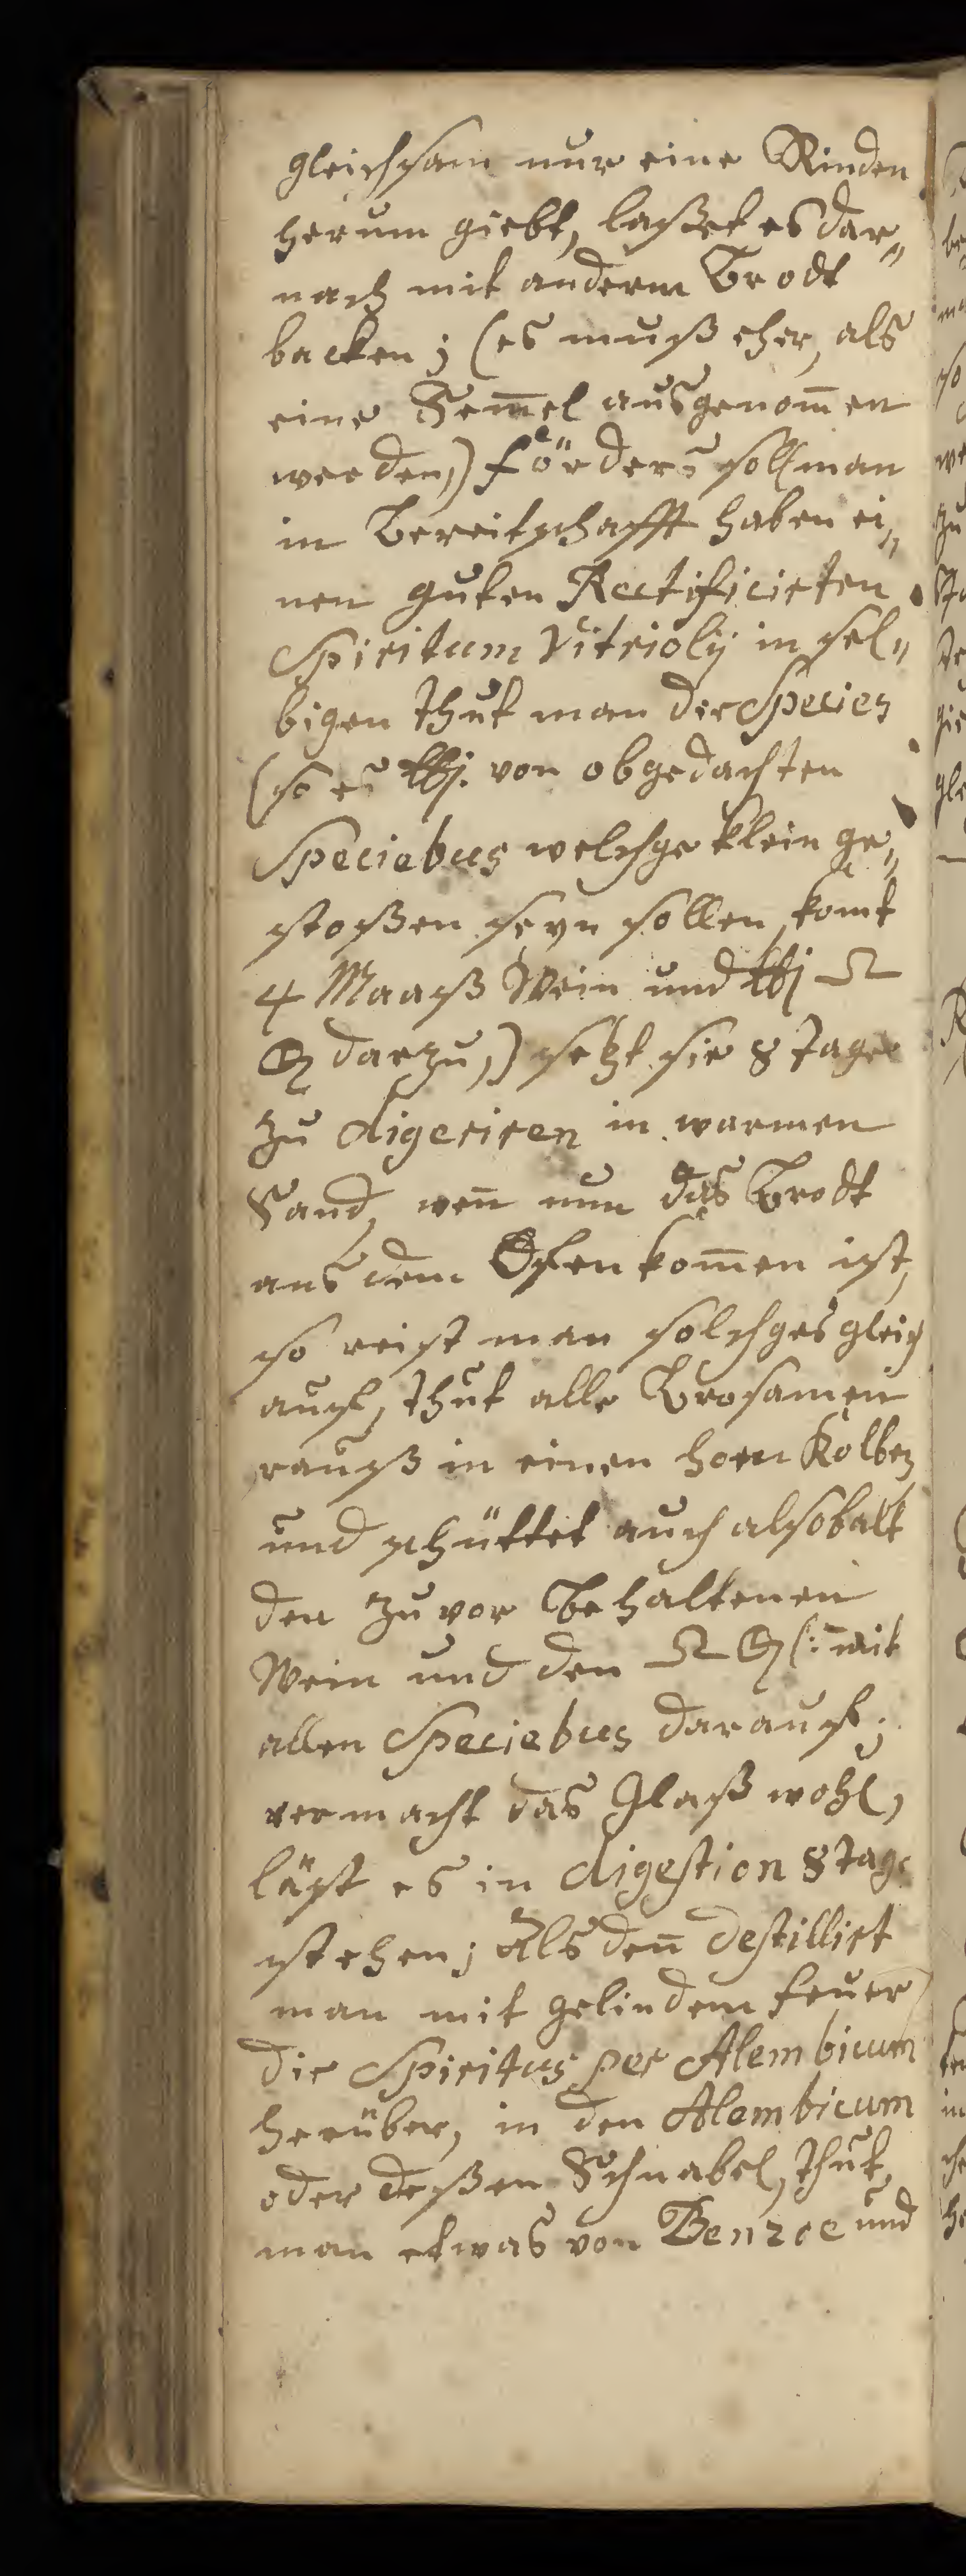 gleichsam nur eine Rinden
herum giebt, laßet es dar„
nach mit anderm Brodt
backen; (es muß eher, als
eine Sem̅el ausgenom̅en
werden,) förders soll man
in Bereitschafft haben ei„
nen guten Rectificirten
Spiritum Vitriolij in sel„
bigen thut man die Species
(so es ℔j. von obgedachten
Speciebus welchge klein ge„
stoßen seyn sollen, komt
4 Maaß Wein und ℔j
darzu,) setzt sie 8 tage
zu digeriren in warmen
Sand, wen̅ nun das Brodt
aus dem Ofen kom̅en ist,
so reist man solchges gleich
auf, thut alle Brosamen
rauß in einen hoen Kolben
und schüttet auch alsobalt
den zuvor behaltenen
Wein und den (: mit
allen Speciebus darauf;
vermacht das Glaß wohl,
läst es in digestion 8 tage
stehen; Alsden̅ destillirt
man mit gelindem feuer
die Spiritus per Alembicum
herüber, in den Alembicum
oder deßen Schnabel, thut
man etwas von Benzoe und